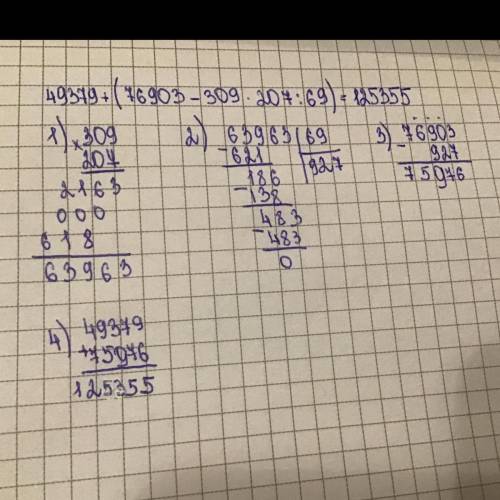 49379+(76903-309·207:69)=125355
1) ×309
207
2163
000
618
63963
2) 63963|69
-621 |927
186
-138
483
-483
0
3) -76903
927
75976
4) 49379
+75976
125355